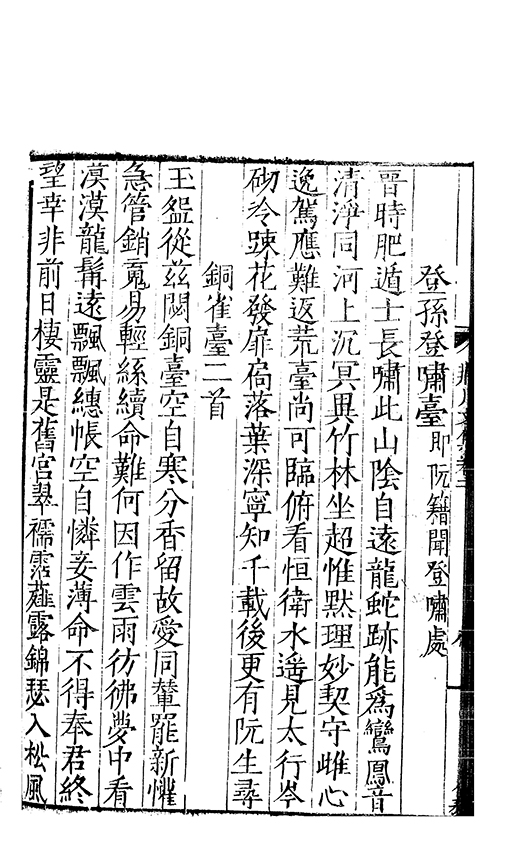 登孫登嘯臺即阮籍聞登嘯處
晉時肥遁士長嘯此山陰自遠龍蛇跡能爲鸞鳳音
清淨同河上沉冥異竹林坐超惟默理妙契守雌心
逸駕應難返荒臺尚可臨俯看恒衛水遙見太行岑
砌冷踈花發扉扃落葉深寧知千載後更有阮生尋
銅雀臺二首
玉盌從兹閟銅臺空自寒分香留故愛同輦罷新懽
急管銷䰟易輕絲續命難何因作雲雨彷彿夢中看
漠漠龍髯遠飄飄繐帳空自憐妾薄命不得奉君終
望幸非前日棲靈是舊宫翠襦霑薤露錦瑟入松風